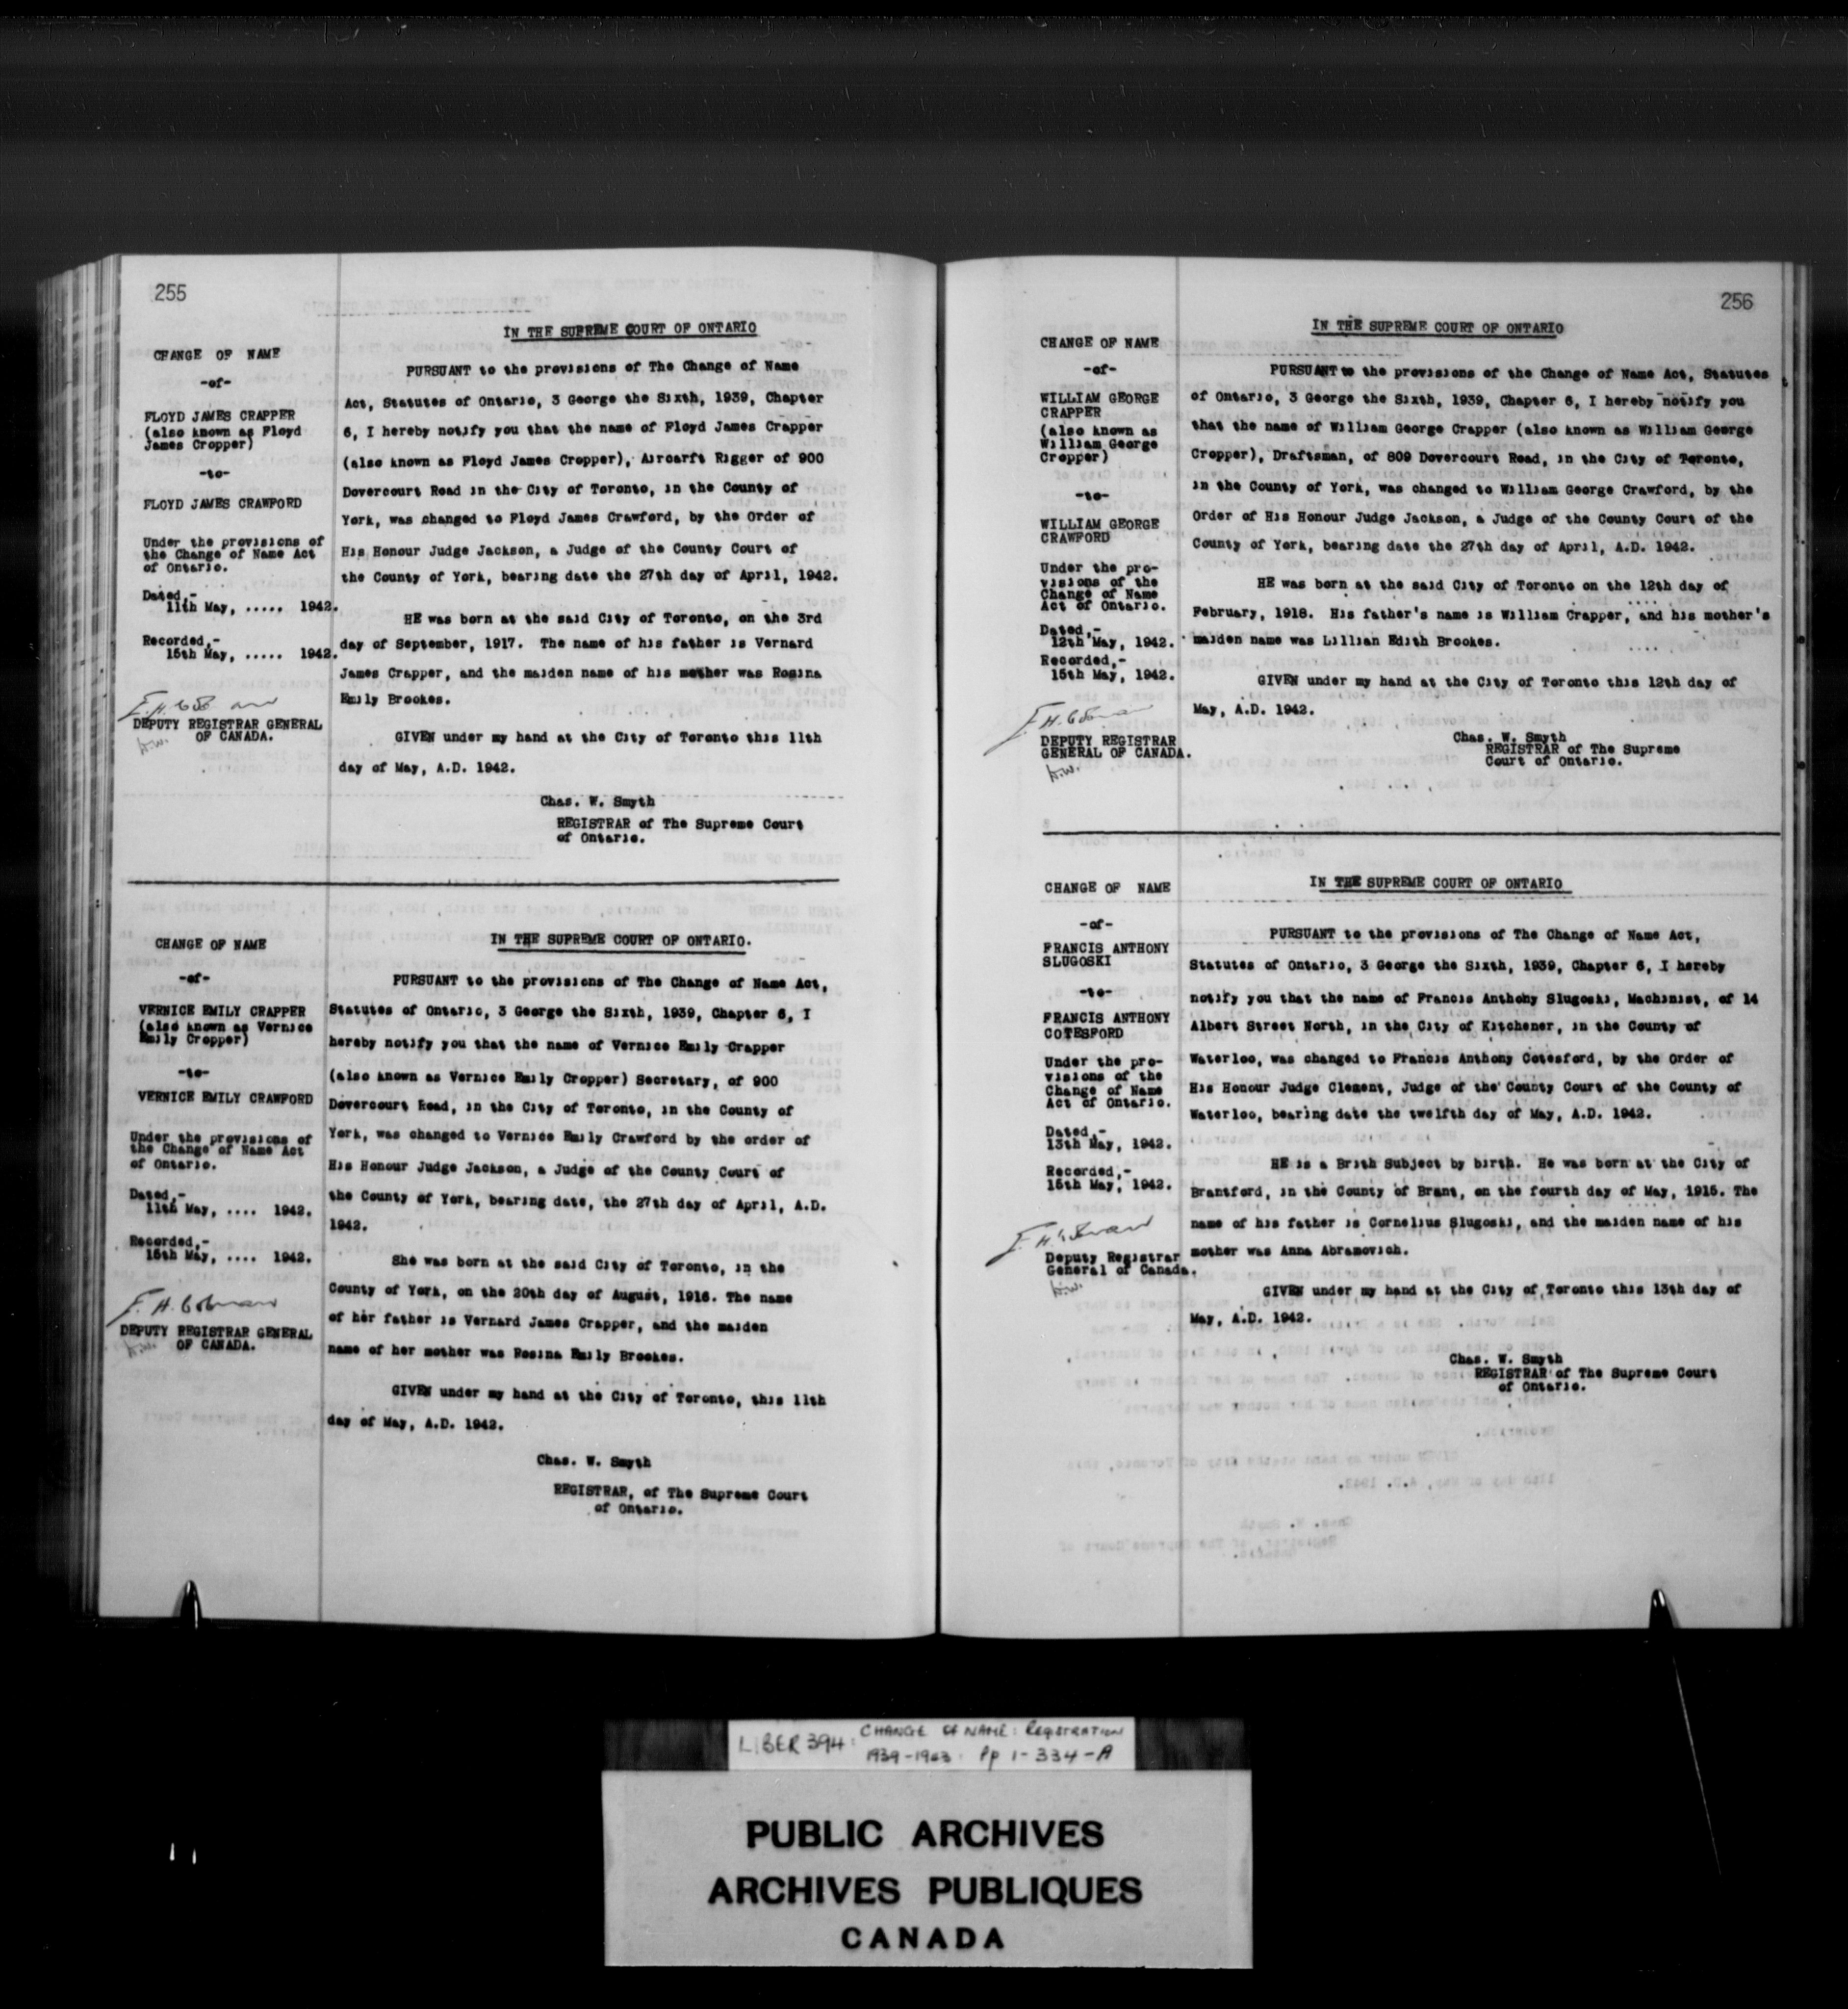 255
CHANGE OF NAME
-of-
FLOYD JAMES CRAPPER
(also known as Floyd
James Cropper)
-to-
FLOYD JAMES CRAWFORD
Under the provisions of
the Change of Name Act
of Ontario.
Dated,-
11th May, ..... 1942.
Recorded,-
15th May, ..... 1942.
DEPUTY REGISTRAR GENERAL
OF CANADA.
IN THE SUPREME COURT OF ONTARIO
PURSUANT to the provisions of The Change of Name
Act, Statutes of Ontario, 3 George the Sixth, 1939, Chapter
6, I hereby notify you that the name of Floyd James Crapper
(also known as Floyd James Cropper), Aircarft Rigger of 900
Dovercourt Road in the City of Toronto, in the County of
York, was changed to Floyd James Crawford, by the Order of
His Honour Judge Jackson, a Judge of the County Court of
the County of York, bearing date the 27th day of April, 1942.
HE was born at the said City of Toronto, on the 3rd
day of September, 1917. The name of his father is Vernard
James Crapper, and the maiden name of his mother was Rosina
Emily Brookes.
GIVEN under my hand at the City of Toronto this 11th
day of May, A.D. 1942.
Chas. W. Smyth
REGISTRAR of The Supreme Court
of Ontario.
CHANGE OF NAME
-of-
VERNICE EMILY CRAPPER
(also known as Vernice
Emily Cropper)
-to-
VERNICE EMILY CRAWFORD
Under the provisions of
the Change of Name Act
of Ontario.
Dated,-
11th May, .... 1942.
Recorded,-
15th May, .... 1942.
DEPUTY REGISTRAR GENERAL
OF CANADA.
IN THE SUPREME COURT OF ONTARIO.
PURSUANT to the provisions of The Change of Name Act,
Statutes of Ontario, 3 George the Sixth, 1939, Chapter 6, I
hereby notify you that the name of Vernice Emily Crapper
(also known as Vernice Emily Cropper) Secretary, of 900
Dovercourt Road, in the City of Toronto, in the County of
York, was changed to Vernice Emily Crawford by the order of
His Honour Judge Jackson, a Judge of the County Court of
the County of York, bearing date, the 27th day of April, A.D.
1942.
She was born at the said City of Toronto, in the
County of York, on the 20th day of August, 1916. The name
of her father is Vernard James Crapper, and the maiden
name of her mother was Rosina Emily Brookes.
GIVEN under my hand at the City of Toronto, this 11th
day of May, A.D. 1942.
Chas. W. Smyth
REGISTRAR, of The Supreme Court
of Ontario.
256
CHANGE OF NAME
-of-
WILLIAM GEORGE
CRAPPER
(also known as
William George
Cropper)
-to-
WILLIAM GEORGE
CRAWFORD
Under the pro-
visions of the
Change of Name
Act of Ontario.
Dated,-
12th May, 1942.
Recorded,-
15th May, 1942.
DEPUTY REGISTRAR
GENERAL OF CANADA.
IN THE SUPREME COURT OF ONTARIO
PURSUANT to the provisions of the Change of Name Act, Statutes
of Ontario, 3 George the Sixth, 1939, Chapter 6, I hereby notify you
that the name of William George Crapper (also known as William George
Cropper), Draftsman, of 809 Dovercourt Road, in the City of Toronto,
in the County of York, was changed to William George Crawford, by the
Order of His Honour Judge Jackson, a Judge of the County Court of the
County of York, bearing date the 27th day of April, A.D. 1942.
HE was born at the said City of Toronto on the 12th day of
February, 1918. His father's name is William Crapper, and his mother's
maiden name was Lillian Edith Brookes.
GIVEN under my hand at the City of Toronto this 12th day of
May, A.D. 1942.
Chas. W. Smyth
REGISTRAR of The Supreme
Court of Ontario.
CHANGE OF NAME
-of-
FRANCIS ANTHONY
SLUGOSKI
-to-
FRANCIS ANTHONY
COTESFORD
Under the pro-
visions of the
Change of Name
Act of Ontario.
Dated,-
13th May, 1942.
Recorded,-
15th May, 1942.
Deputy Registrar
General of Canada.
IN THE SUPREME COURT OF ONTARIO
PURSUANT to the provisions of The Change of Name Act,
Statutes of Ontario, 3 George the Sixth, 1939, Chapter 6, I hereby
notify you that the name of Francis Anthony Slugoski, Machinist, of 14
Albert Street North, in the City of Kitchener, in the County of
Waterloo, was changed to Francis Anthony Cotesford, by the Order of
His Honour Judge Clement, Judge of the County Court of the County of
Waterloo, bearing date the twelfth day of May, A.D. 1942.
HE is a Brith Subject by birth. He was born at the City of
Brantford, in the County of Brant, on the fourth day of May, 1915. The
name of his father is Cornelius Slugoski, and the maiden name of his
mother was Anna Abramovich.
GIVEN under my hand at the City of Toronto this 13th day of
May, A.D. 1942.
Chas. W. Smyth
REGISTRAR of The Supreme Court
of Ontario.
LIBER 394: CHANGE OF NAME: Registration
1939-1943. Pp 1-334-A
PUBLIC ARCHIVES
ARCHIVES PUBLIQUES
CANADA